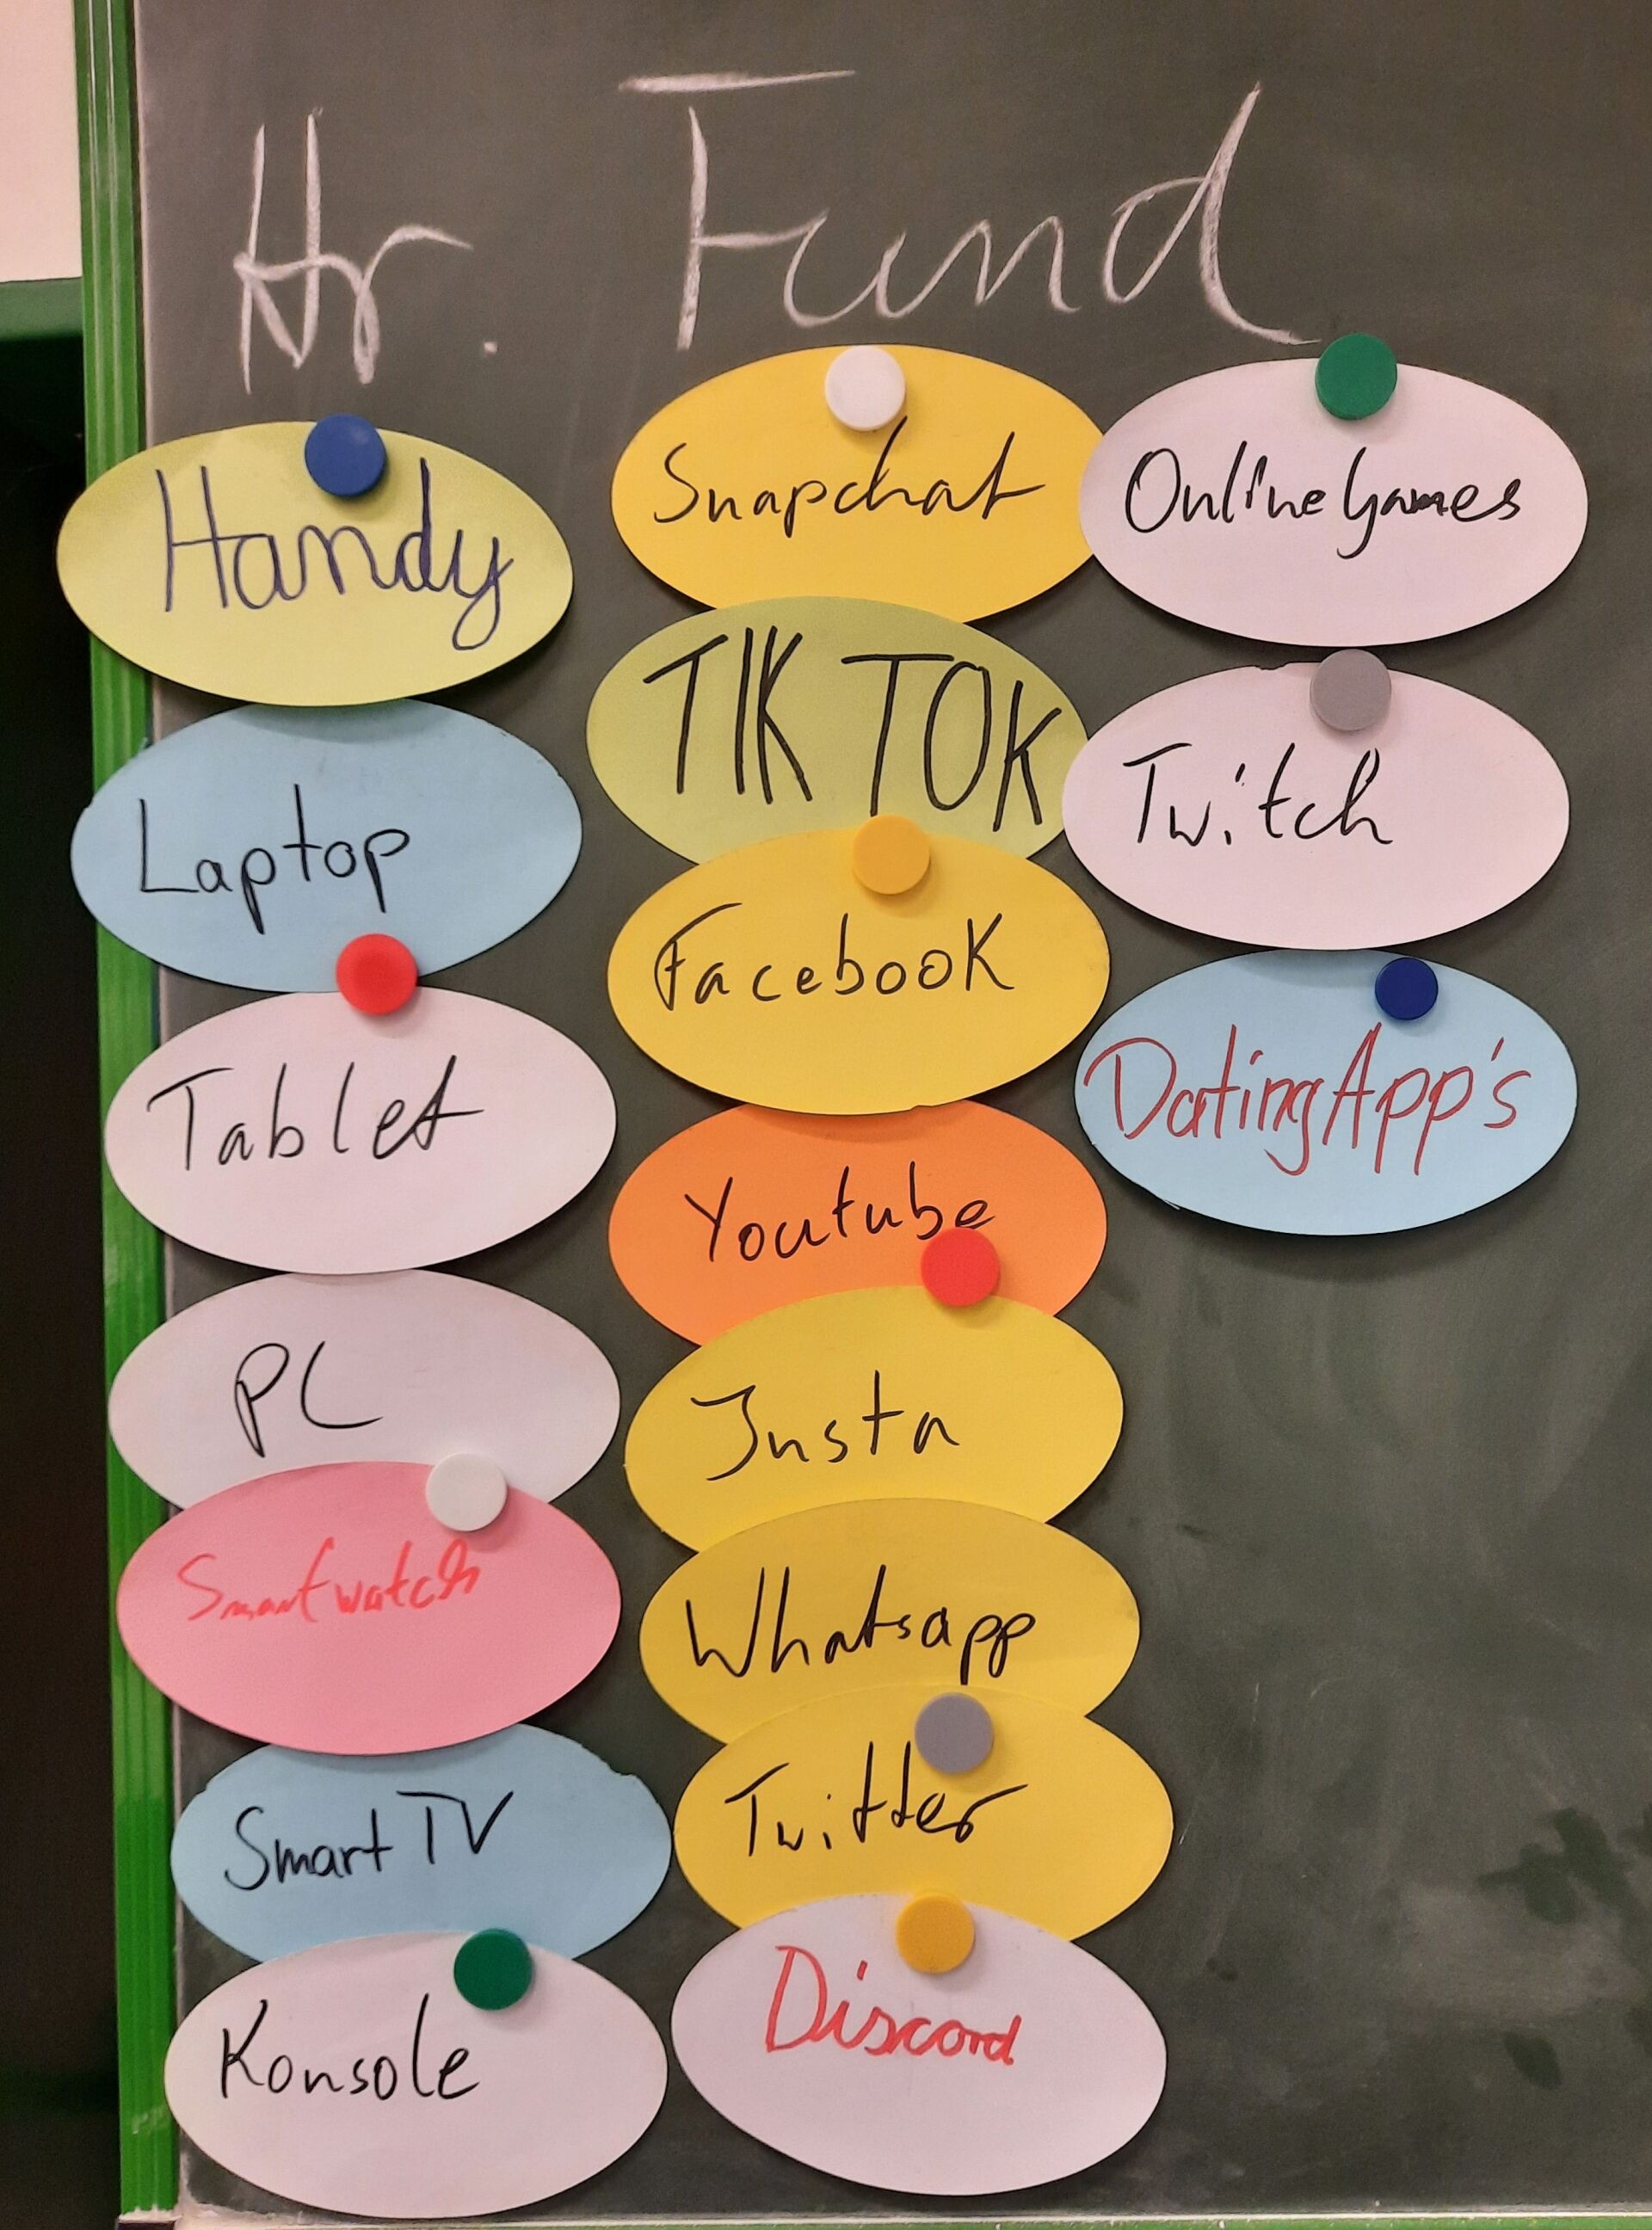 Hr. Fund
Handy
Laptop
Tablet
PC
Smartwatch
Smart TV
Konsole
Snapchat
TIK TOK
Facebook
Youtube
Insta
Whatsapp
Twitter
Discord
Online Games
Twitch
Dating App's